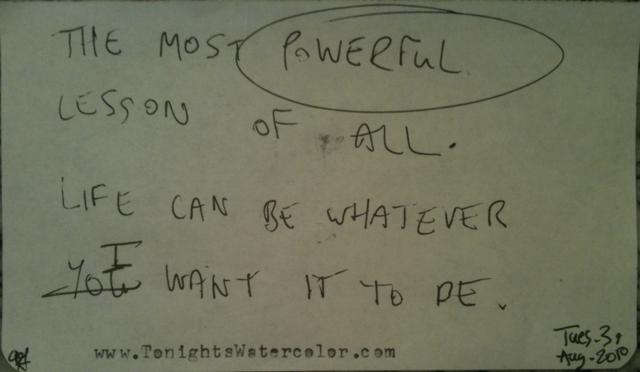 THE MOST POWERFUL
LESSON OF ALL.
LIFE CAN BE WHATEVER
I
YOU WANT IT TO BE.
www.TonightsWatercolor.com
Tues-31
Aug-2010